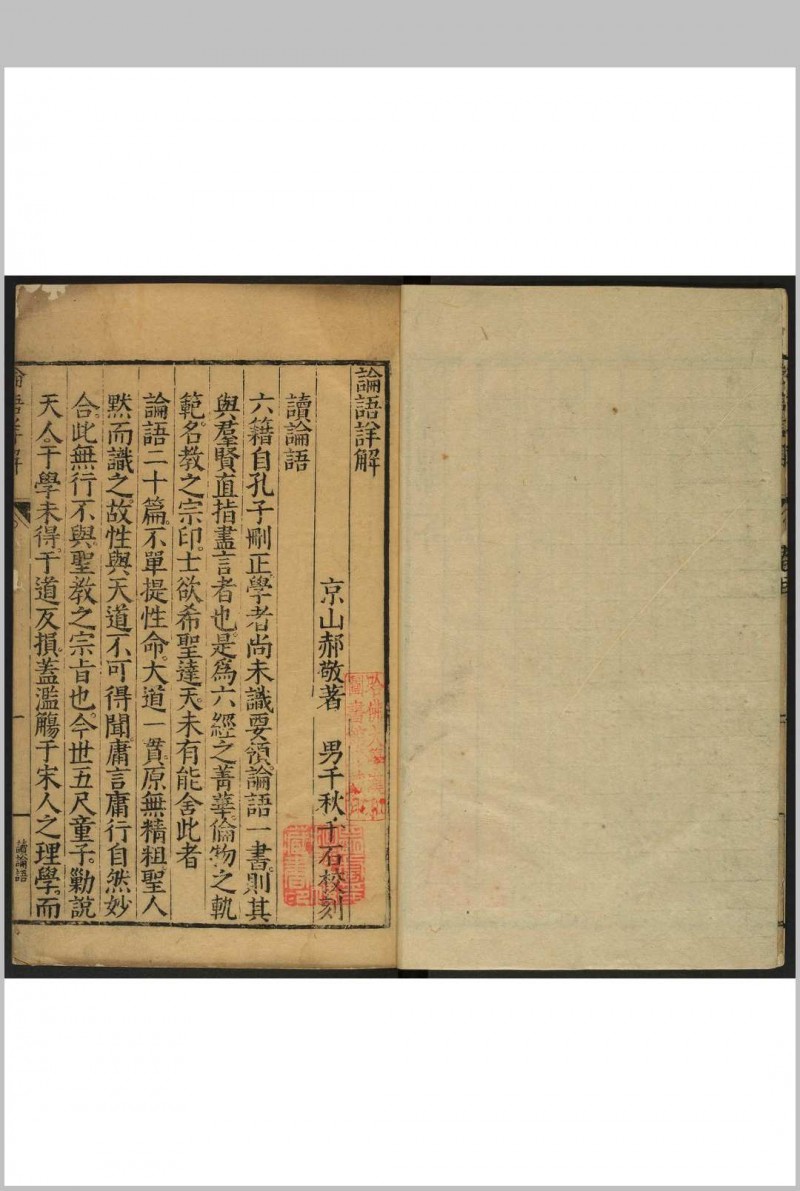 論語詳解
京山郝敬著　男千秋千石校刻
讀論語
六籍自孔子刪正學者尚未識要領。論語一書。則其
與羣賢直指盡言者也。是爲六經之菁華。倫物之軌
範。名教之宗印。士欲希聖達天。未有能舍此者
論語二十篇。不單提性命。大道一貫。原無精粗聖人
默而識之。故性與天道不可得聞。庸言庸行自然妙
合。此無行不與。聖教之宗旨也。今世五尺童子。勦說
天人。于學未得。于道反損。蓋濫觴于宋人之理學。而
論語詳解
讀論語